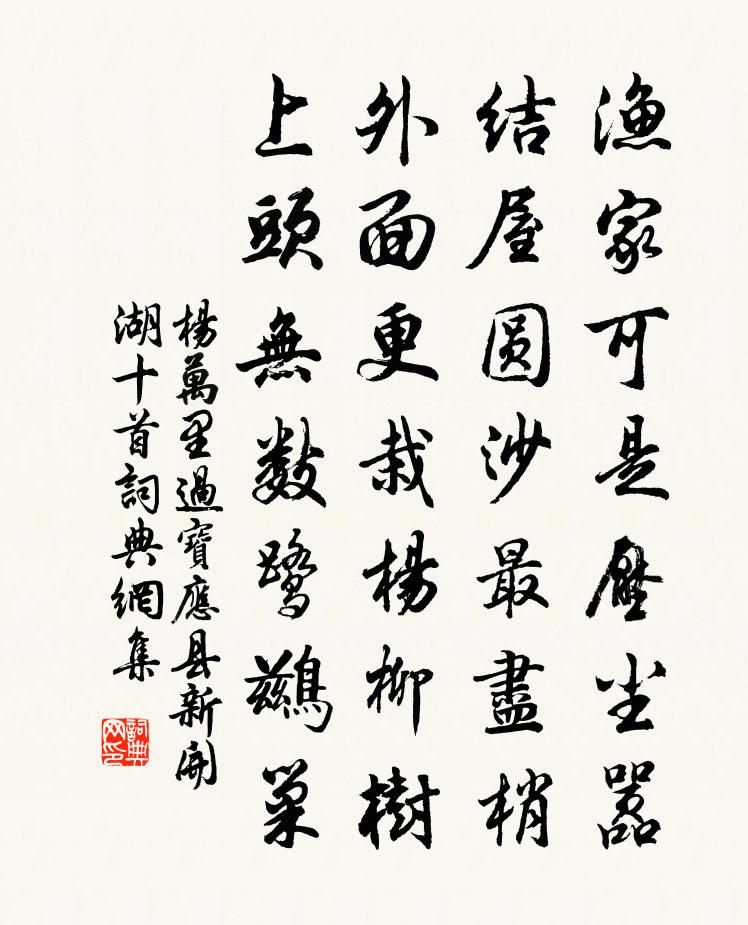 漁家可是厭尘囂
結屋圓沙最盡梢
外面更栽楊柳樹
上頭無数鷺鷀巢
楊萬里過寶應县新開
湖十首詞典網集
詞典网印